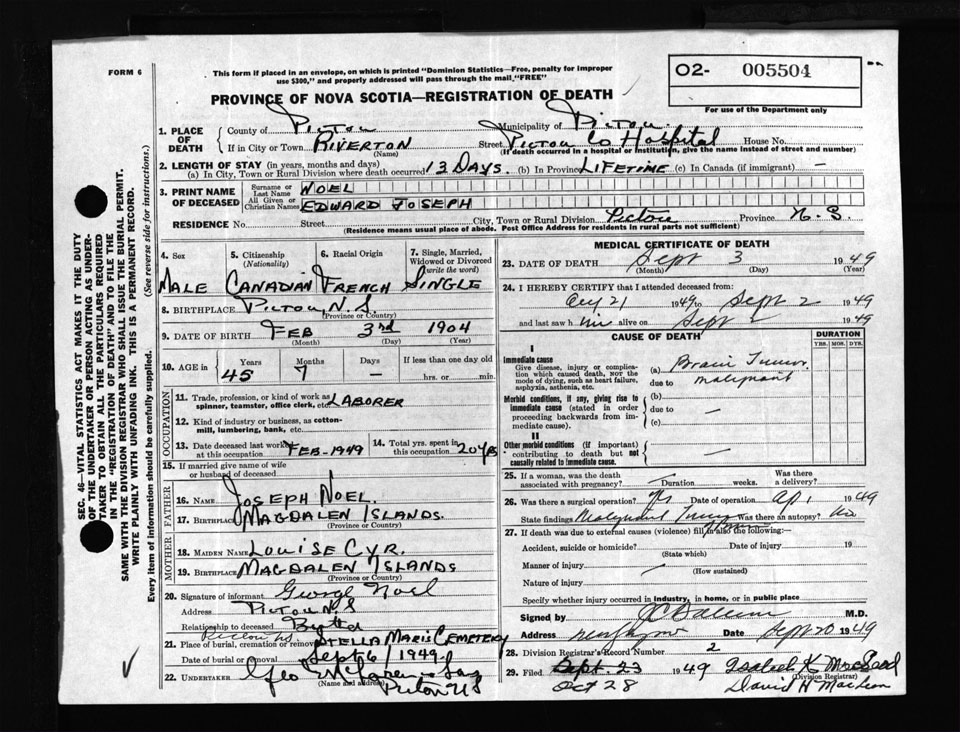 FORM 6
This form if placed in an envelope, on which is printed "Dominion Statistics—Free, penalty for improper
use $300," and properly addressed will pass through the mail, "FREE"
O2- 005504
For use of the Department only
PROVINCE OF NOVA SCOTIA—REGISTRATION OF DEATH
1. PLACE OF DEATH
County of Pictou Municipality of Pictou
If in City or Town RIVERTON Street Pictou Co Hospital House No.
(Name) (If death occurred in a hospital or institution, give the name instead of street and number)
2. LENGTH OF STAY (in years, months and days)
(a) In City, Town or Rural Division where death occurred 13 DAYS. (b) In Province LIFETIME (c) In Canada (if immigrant) —
3. PRINT NAME OF DECEASED
Surname or Last Name NOEL
All Given or Christian Names EDWARD JOSEPH
RESIDENCE No. Street City, Town or Rural Division Pictou Province N.S
(Residence means usual place of abode. Post Office Address for residents in rural parts not sufficient)
4. Sex 5. Citizenship (Nationality) 6. Racial Origin 7. Single, Married, Widowed or Divorced (write the word)
MALE CANADIAN FRENCH SINGLE
8. BIRTHPLACE PICTOU, N.S
(Province or Country)
9. DATE OF BIRTH FEB 3rd 1904
(Month) (Day) (Year)
10. AGE in Years Months Days If less than one day old
45 7 — hrs. or min.
OCCUPATION
11. Trade, profession, or kind of work as
spinner, teamster, office clerk, etc. LABORER
12. Kind of industry or business, as cotton-
mill, lumbering, bank, etc.
13. Date deceased last worked at this occupation FEB-1949 14. Total yrs. spent in this occupation 20 yrs
15. If married give name of wife
or husband of deceased
FATHER
16. NAME JOSEPH NOEL.
17. BIRTHPLACE MAGDALEN ISLANDS.
(Province or Country)
MOTHER
18. MAIDEN NAME LOUISE CYR.
19. BIRTHPLACE MAGDALEN ISLANDS
(Province or Country)
20. Signature of informant George Noel
Address PICTOU N.S
Relationship to deceased
21. Place of burial, cremation or removal STELLA MARIS CEMETERY
Pictou NS
Date of burial or removal Sept 6/1949
22. UNDERTAKER Geo
(Name and address)
Pictou NS
MEDICAL CERTIFICATE OF DEATH
23. DATE OF DEATH Sept 3 1949
(Month) (Day) (Year)
24. I HEREBY CERTIFY that I attended deceased from:
Aug 21 1949 to Sept 2 1949
and last saw him alive on Sept 2 1949
CAUSE OF DEATH DURATION
YRS. MOS. DYS.
I
Immediate cause
Give disease, injury or complica-
tion which caused death, NOT the
mode of dying, such as heart failure,
asphyxia, asthenia, etc.
(a) Brain Tumor.
due to malignant
Morbid conditions, if any, giving rise to
immediate cause (stated in order
proceeding backwards from im-
mediate cause).
(b)
due to —
(c)
II
Other morbid conditions (if important)
contributing to death but not
causally related to immediate cause.
—
25. If a woman, was the death associated with pregnancy? Duration weeks. Was there a delivery?
26. Was there a surgical operation? Yes Date of operation Ap, 1949
State findings Malignant Tumor Was there an autopsy? No
27. If death was due to external causes (violence) fill in also the following:—
Accident, suicide or homicide? Date of injury 19
(State which)
Manner of injury
(How sustained)
Nature of injury
Specify whether injury occurred in industry, in home, or in public place
Signed by M.D.
Address New Glasgow Date Sept 20 1949
28. Division Registrar's Record Number 2
29. Filed Sept. 23 1949
Oct 28
(Division Registrar)
SEC. 46—VITAL STATISTICS ACT MAKES IT THE DUTY
OF THE UNDERTAKER OR PERSON ACTING AS UNDER-
TAKER TO OBTAIN ALL THE PARTICULARS REQUIRED
IN THE "REGISTRATION OF DEATH" AND TO FILE THE
SAME WITH THE DIVISION REGISTRAR WHO SHALL ISSUE THE BURIAL PERMIT.
WRITE PLAINLY WITH UNFADING INK. THIS IS A PERMANENT RECORD.
Every item of information should be carefully supplied. (See reverse side for instructions.)